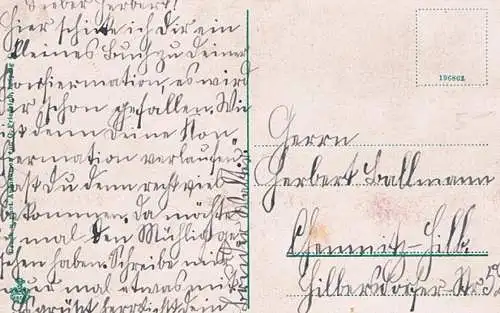 Lieber Herbert!
Hier schicke ich Dir ein
kleines Buch zu Deiner
Konfiermation, es wird
Dir schon gefallen. Wie
ist denn Deine Kon
fiermation verlaufen
hast Du denn recht viel
bekommen. Da möchte
mal den Mühlig ge
sehen haben. Schreibe mir
nur mal etwas mit
Es grüßt herzlicht Dein
196862
Herrn
Herbert Ballmann
Chemnitz-Hilb.
Hilbersdorfer Str.